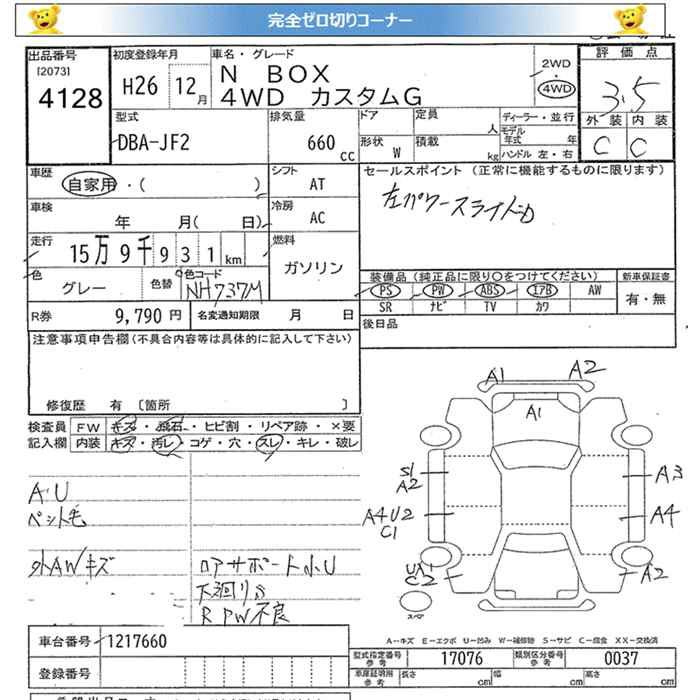 完全ゼロ切りコーナー
出品番号
[2073]
4128
初度登録年月
H26 12月
車名・グレード
N BOX
4WD カスタムG
2WD
・
4WD
評価点
3.5
外装 内装
C C
型式
DBA-JF2
排気量
660 cc
ドア
定員
人
形状
W
積載
kg
ディーラー・並行
モデル年式 年
ハンドル 左・右
車歴
自家用・( )
シフト
AT
セールスポイント (正常に機能するものに限ります)
左パワースライドD
車検
年 月( 日)
冷房
AC
走行
15万9千931km
燃料
ガソリン
色
グレー
色替
色コード
NH737M
装備品 (純正品に限り〇をつけてください)
PS PW ABS エアB AW
SR ナビ TV カワ
新車保証書
有・無
R券 9,790 円
名変通知期限 月 日
後日品
注意事項申告欄(不具合内容等は具体的に記入して下さい)
修復歴 有 [箇所 ]
検査員
記入欄
FW キズ・飛石・ヒビ割・リペア跡・×要
内装 キズ・汚レ・コゲ・穴・スレ・キレ・破レ
A.U
ペット毛
外AWキズ
ロアサポート小U
下廻りS
R PW不良
A1 A2
A1
S1
A2
A3
A4U2
C1
A4
UA1
C2
A2
スペア
A-キズ E-エクボ U-凹み W-補修跡 S-サビ C-腐食 XX-交換済
車台番号 1217660
登録番号
型式指定番号
参考
17076
類別区分番号
参考
0037
車庫証明用
参考
長さ cm 幅 cm 高さ cm